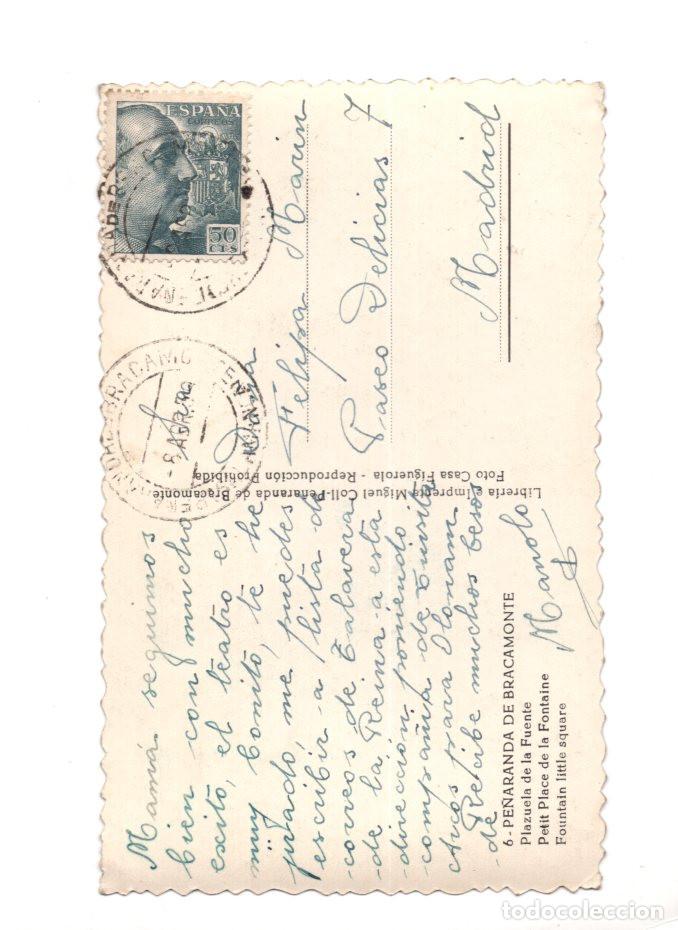 ESPAÑA
CORREOS
50
CTS
8 ABR
Felipa Marin
Paseo Delicias 7
Madrid
Mamá seguimos
bien con mucho
exito, el teatro es
muy bonito, te he
me puedes
escribir a lista de
correos de Talavera
de la Reina a esta
dirección poniendo
compañia de
para
de Recibe muchos besos
Manolo
Libreria e Imprenta Miguel Coll-Peñaranda de Bracamonte
Foto Casa Figuerola - Reproducción Prohibida
6 - PEÑARANDA DE BRACAMONTE
Plazuela de la Fuente
Petit Place de la Fontaine
Fountain little square
todocoleccion